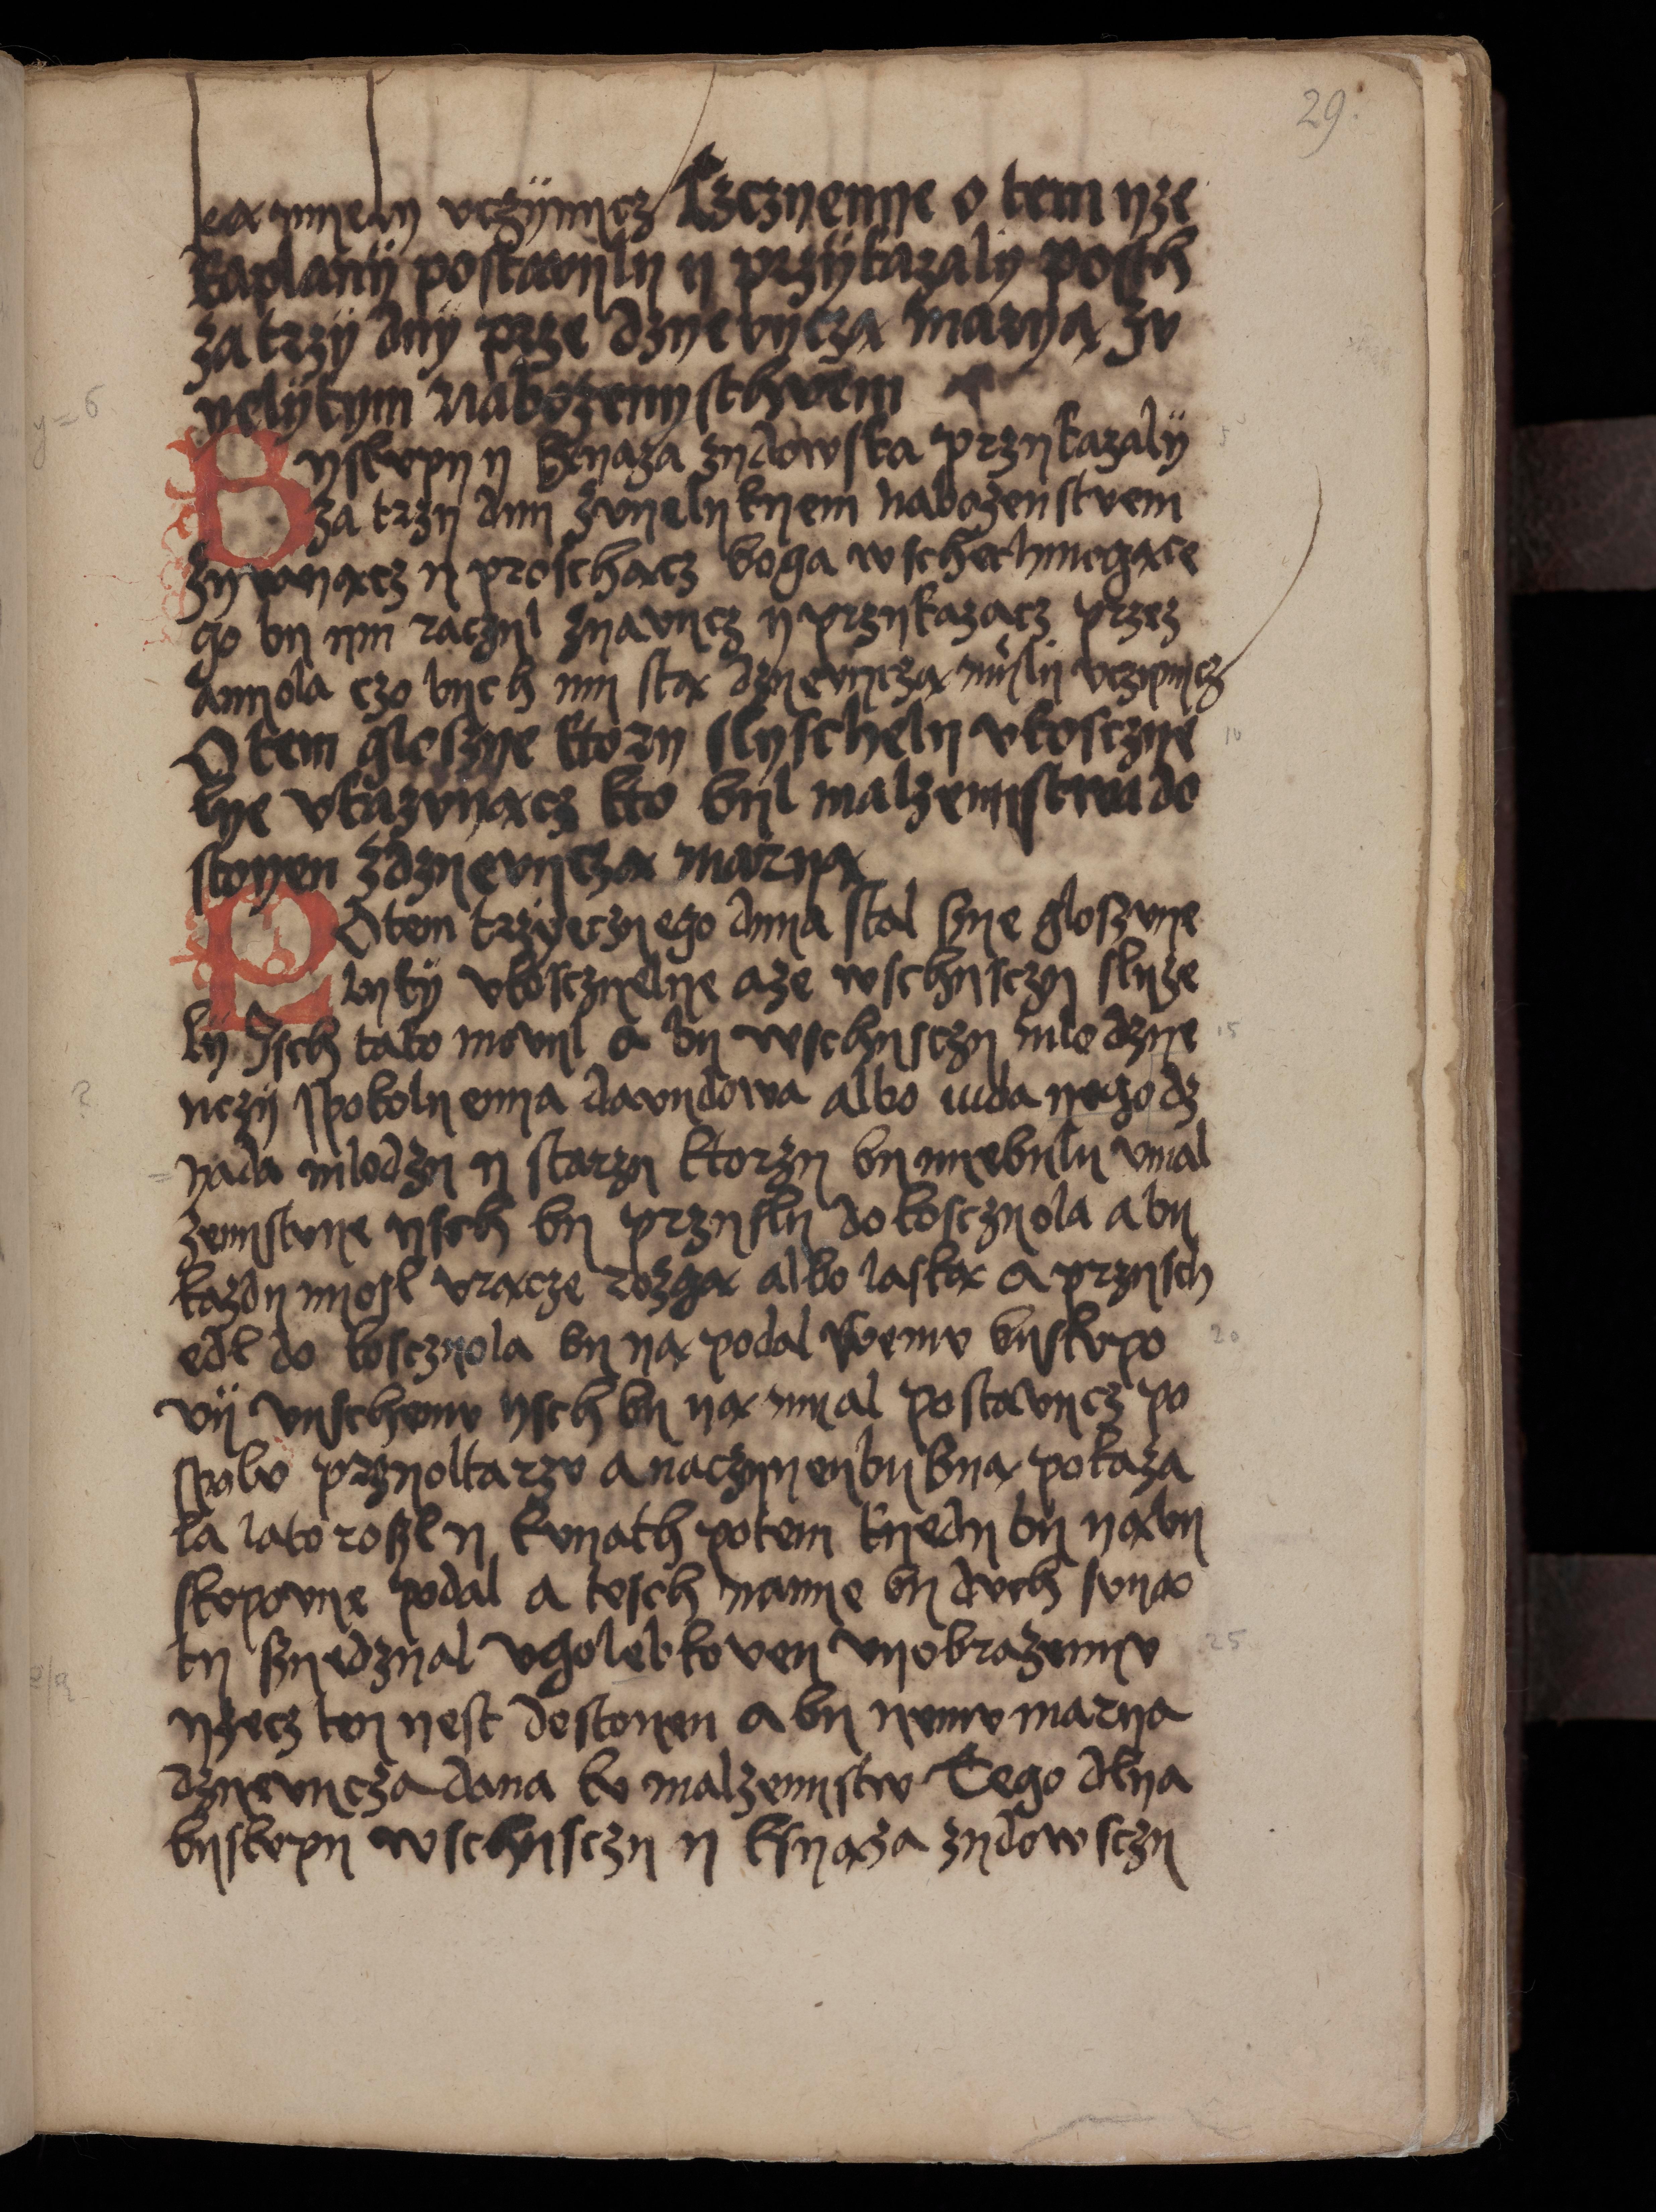 29.
ea myely vczÿnycz Czcznenye o tem yze
kaplanÿ postawÿly y przÿkazalÿ posth
za trzÿ dnÿ prze dzyevÿczą marÿą zv
yelÿkym nabozenysthvem
Byskvpy y kxyaza zydowska przykazalÿ 5
y=6
za trzy dny zvyelykyem nabozenstvem
zyvyącz y proschącz boga wschechmogące
go by ym raczyl zyavycz y przykazacz przez
anyola czo bych my stą dzyevyczą myslÿ vczynycz
O tem glosze ktory slyschely vkosczye 10
lye vkazvyącz kto byl malzenystwa do
stoyen zdzyevyczą maryą
POtem trzyeczyego dnya stal szye glosz vye
lykÿ vkosczyelye aze wschysczy slysze
lÿ Isch tako movyl a by wschysczy mlodzye 15
nczÿ spokolyenya davydowa albo iuda yegodz
?
nada mlodzy y starzy ktorzy by nyebyly vmal
zenstvye ysch by przysly do kosczyola a by
kazdy nyosl vrącze rozgą albo laską a przysch
edl do kosczyola by yą podal svemv byskvpo 20
vÿ vyschemv ysch by yą myal postavycz po
spolv przyoltarzv a naczyyey by szyą pokaza
la latorosl y kvyath potem kyedy by yą by
skvpovye podal a tesch na nye by dvch svyą
ty szyedzyal vgolebkovey vyobrazenyv 25
yzecz ten yest dostoyen a by yemv marya
dzyevycza dana kv malzenystwv Tego dlya
byskvpy wschysczy y ksyąza zydowsczy